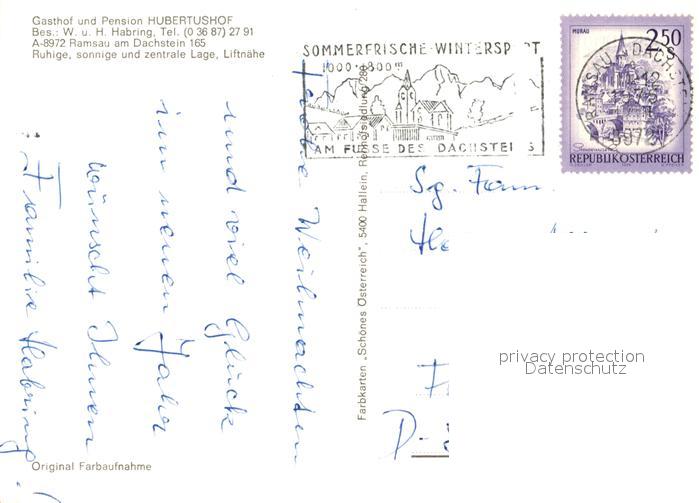 Gasthof und Pension HUBERTUSHOF
Bes.: W. u. H. Habring, Tel. (0 36 87) 27 91
A-8972 Ramsau am Dachstein 165
Ruhige, sonnige und zentrale Lage, Liftnähe
SOMMERFRISCHE-WINTERSP RT
1000-2800m
AM FUSSE DES DACHSTEI S
MURAU
2.50
S
REPUBLIK ÖSTERREICH
RAMSAU A. DACHSTEIN
8972
Weihnachten
und viel Glück
im neuen Jahr
wünscht Ihnen
Familie Habring!
Farbkarten „Schönes Österreich", 5400 Hallein,
Sg. Fam.
D-
privacy protection
Datenschutz
Original Farbaufnahme